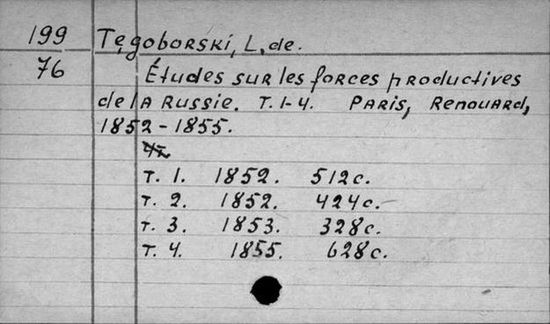 199 Tęgoborski, L. de.
76 Études sur les forces productives
de la Russie. T. 1-4. Paris, Renouard,
1852-1855.
т. 1. 1852. 512с.
т. 2. 1852. 424с.
т. 3. 1853. 328с.
т. 4. 1855. 628с.